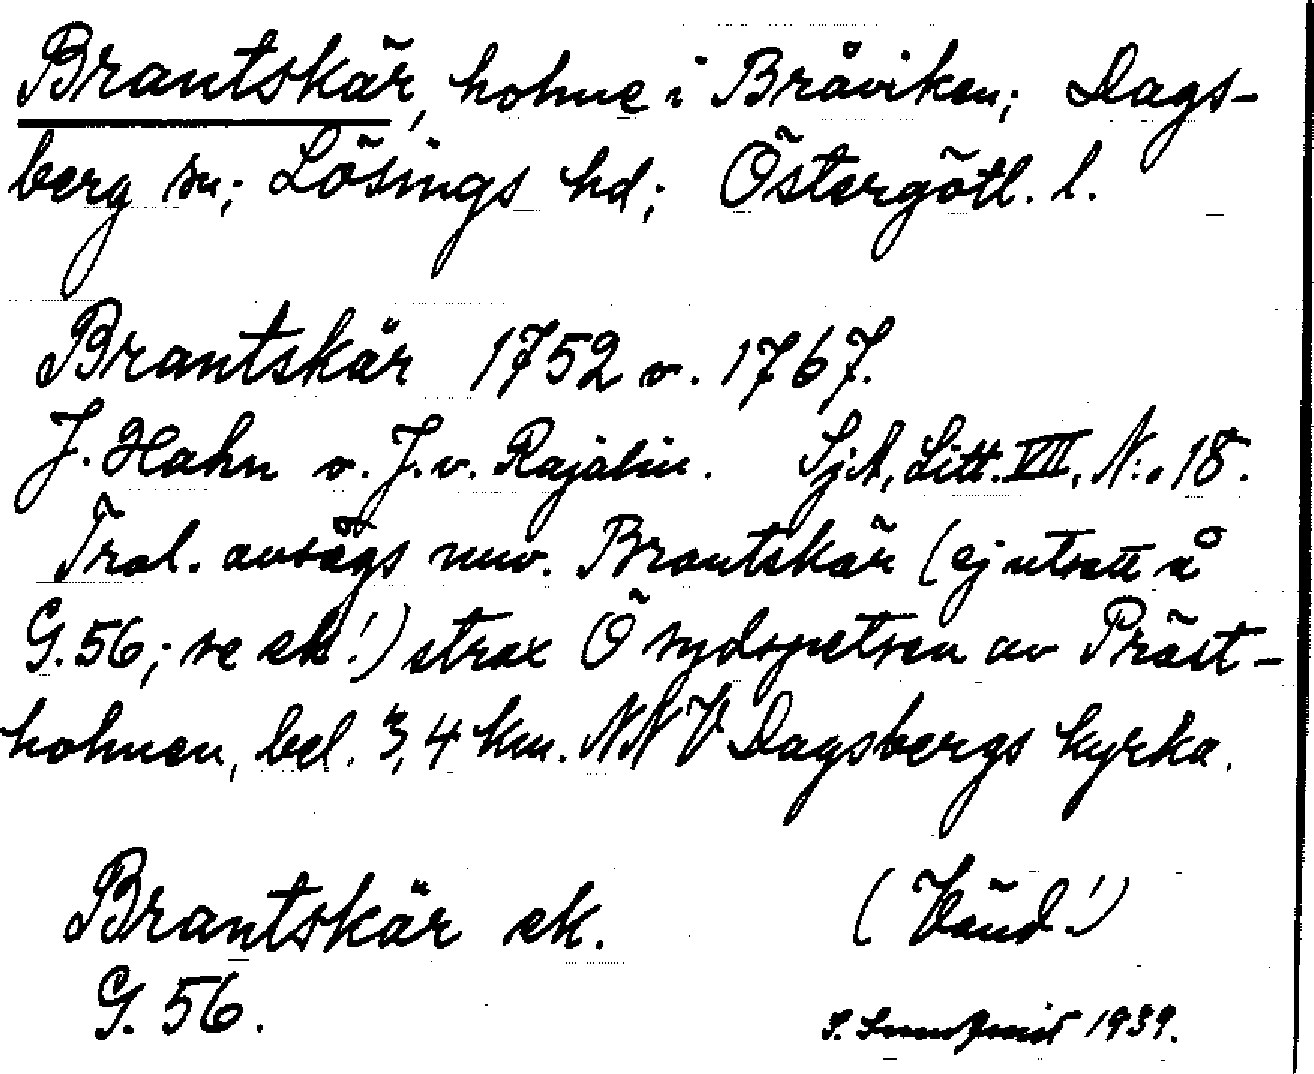 Brantskär, holme i Bråviken; Dags-
berg sn; Lösings hd; Östergötl. l.
Brantskär 1752 o. 1767.
J. Hahn o. J. v. Rajalin. Sjök, Litt. VII, N:o 18.
Trol. avsågs nuv. Brantskär (ej utsatt å
G. 56; se ek!) strax Ö sydspetsen av Präst-
holmen, bel. 3,4 km. NNV Dagsbergs kyrka.
Brantskär ek. (Vänd!)
G. 56.
1939.